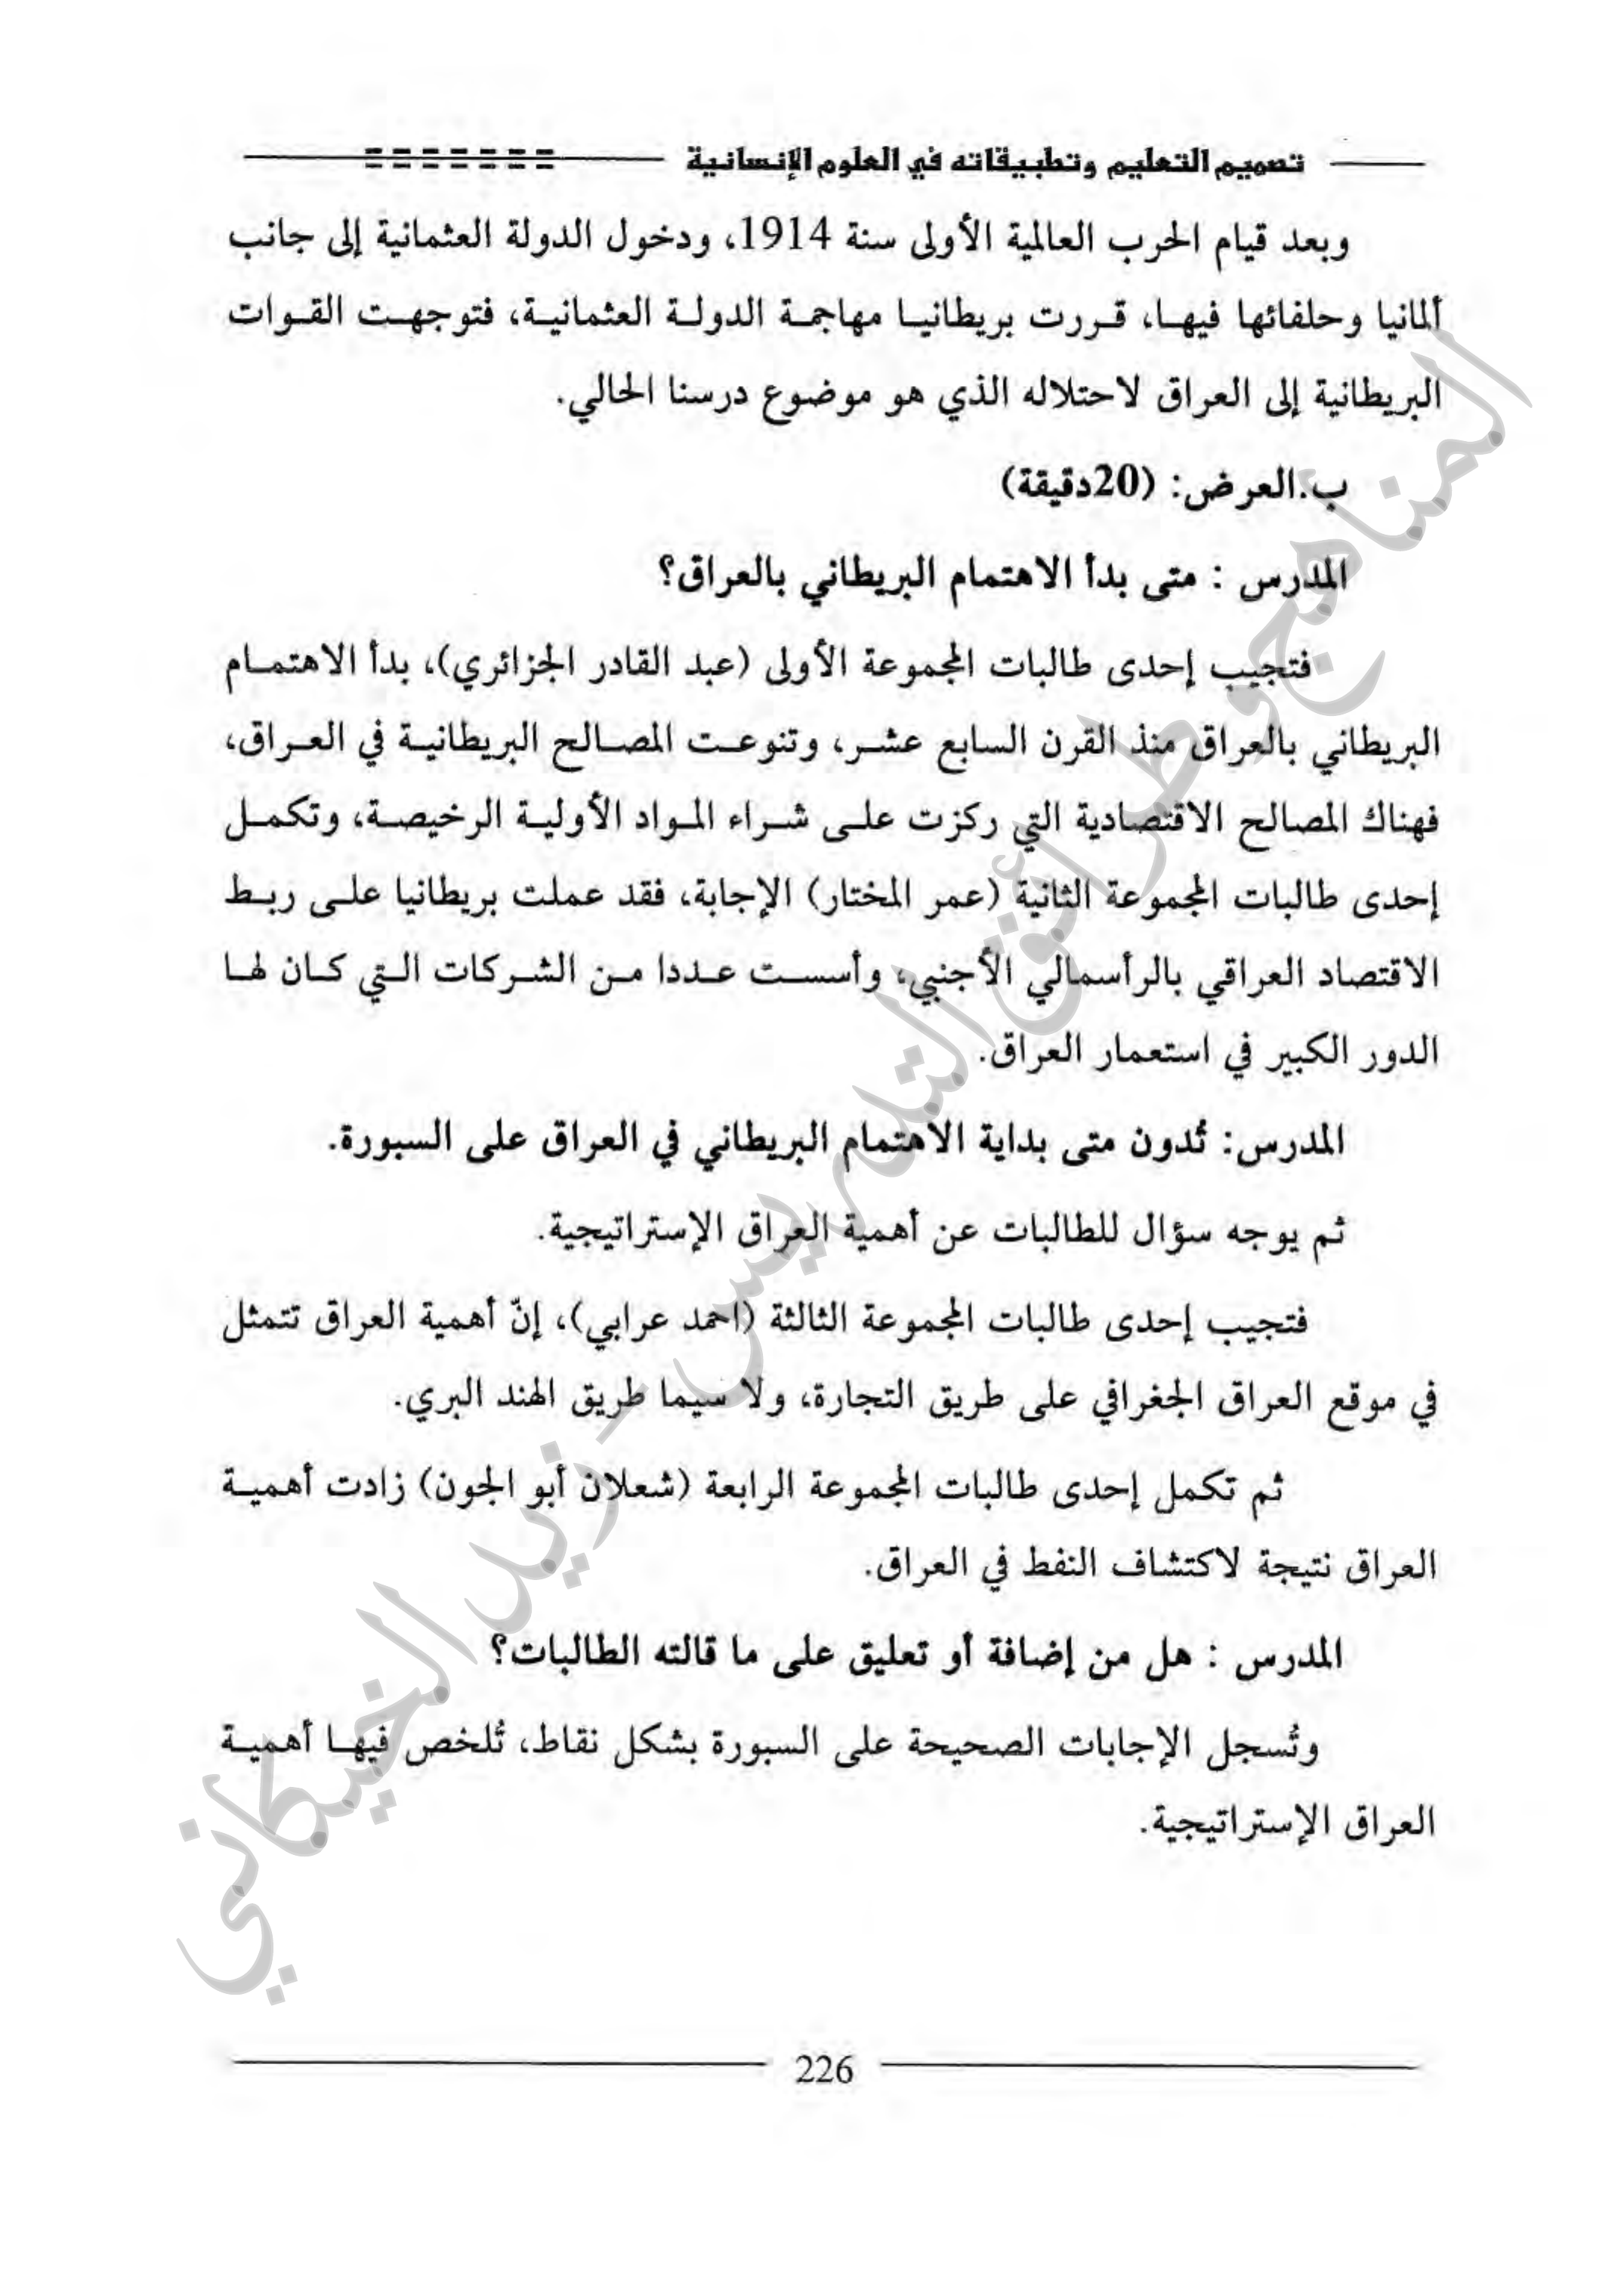 تصميم التعليم وتطبيقاته في العلوم الإنسانية
وبعد قيام الحرب العالمية الأولى سنة 1914، ودخول الدولة العثمانية إلى جانب
ألمانيا وحلفائها فيها، قررت بريطانيا مهاجمة الدولة العثمانية، فتوجهت القوات
البريطانية إلى العراق لاحتلاله الذي هو موضوع درسنا الحالي.
ب.العرض: (20دقيقة)
المدرس : متى بدأ الاهتمام البريطاني بالعراق؟
فتجيب إحدى طالبات المجموعة الأولى (عبد القادر الجزائري)، بدأ الاهتمام
البريطاني بالعراق منذ القرن السابع عشر، وتنوعت المصالح البريطانية في العراق،
فهناك المصالح الاقتصادية التي ركزت على شراء المواد الأولية الرخيصة، وتكمل
إحدى طالبات المجموعة الثانية (عمر المختار) الإجابة، فقد عملت بريطانيا على ربط
الاقتصاد العراقي بالرأسمالي الأجنبي، وأسست عددا من الشركات التي كان لها
الدور الكبير في استعمار العراق.
المدرس: تُدون متى بداية الاهتمام البريطاني في العراق على السبورة.
ثم يوجه سؤال للطالبات عن أهمية العراق الإستراتيجية.
فتجيب إحدى طالبات المجموعة الثالثة (احمد عرابي)، إنّ أهمية العراق تتمثل
في موقع العراق الجغرافي على طريق التجارة، ولا سيما طريق الهند البري.
ثم تكمل إحدى طالبات المجموعة الرابعة (شعلان أبو الجون) زادت أهمية
العراق نتيجة لاكتشاف النفط في العراق.
المدرس : هل من إضافة أو تعليق على ما قالته الطالبات؟
وتُسجل الإجابات الصحيحة على السبورة بشكل نقاط، تُلخص فيها أهمية
العراق الإستراتيجية.
226
المناهج وطرائق التدريس - زيد الخيكاني